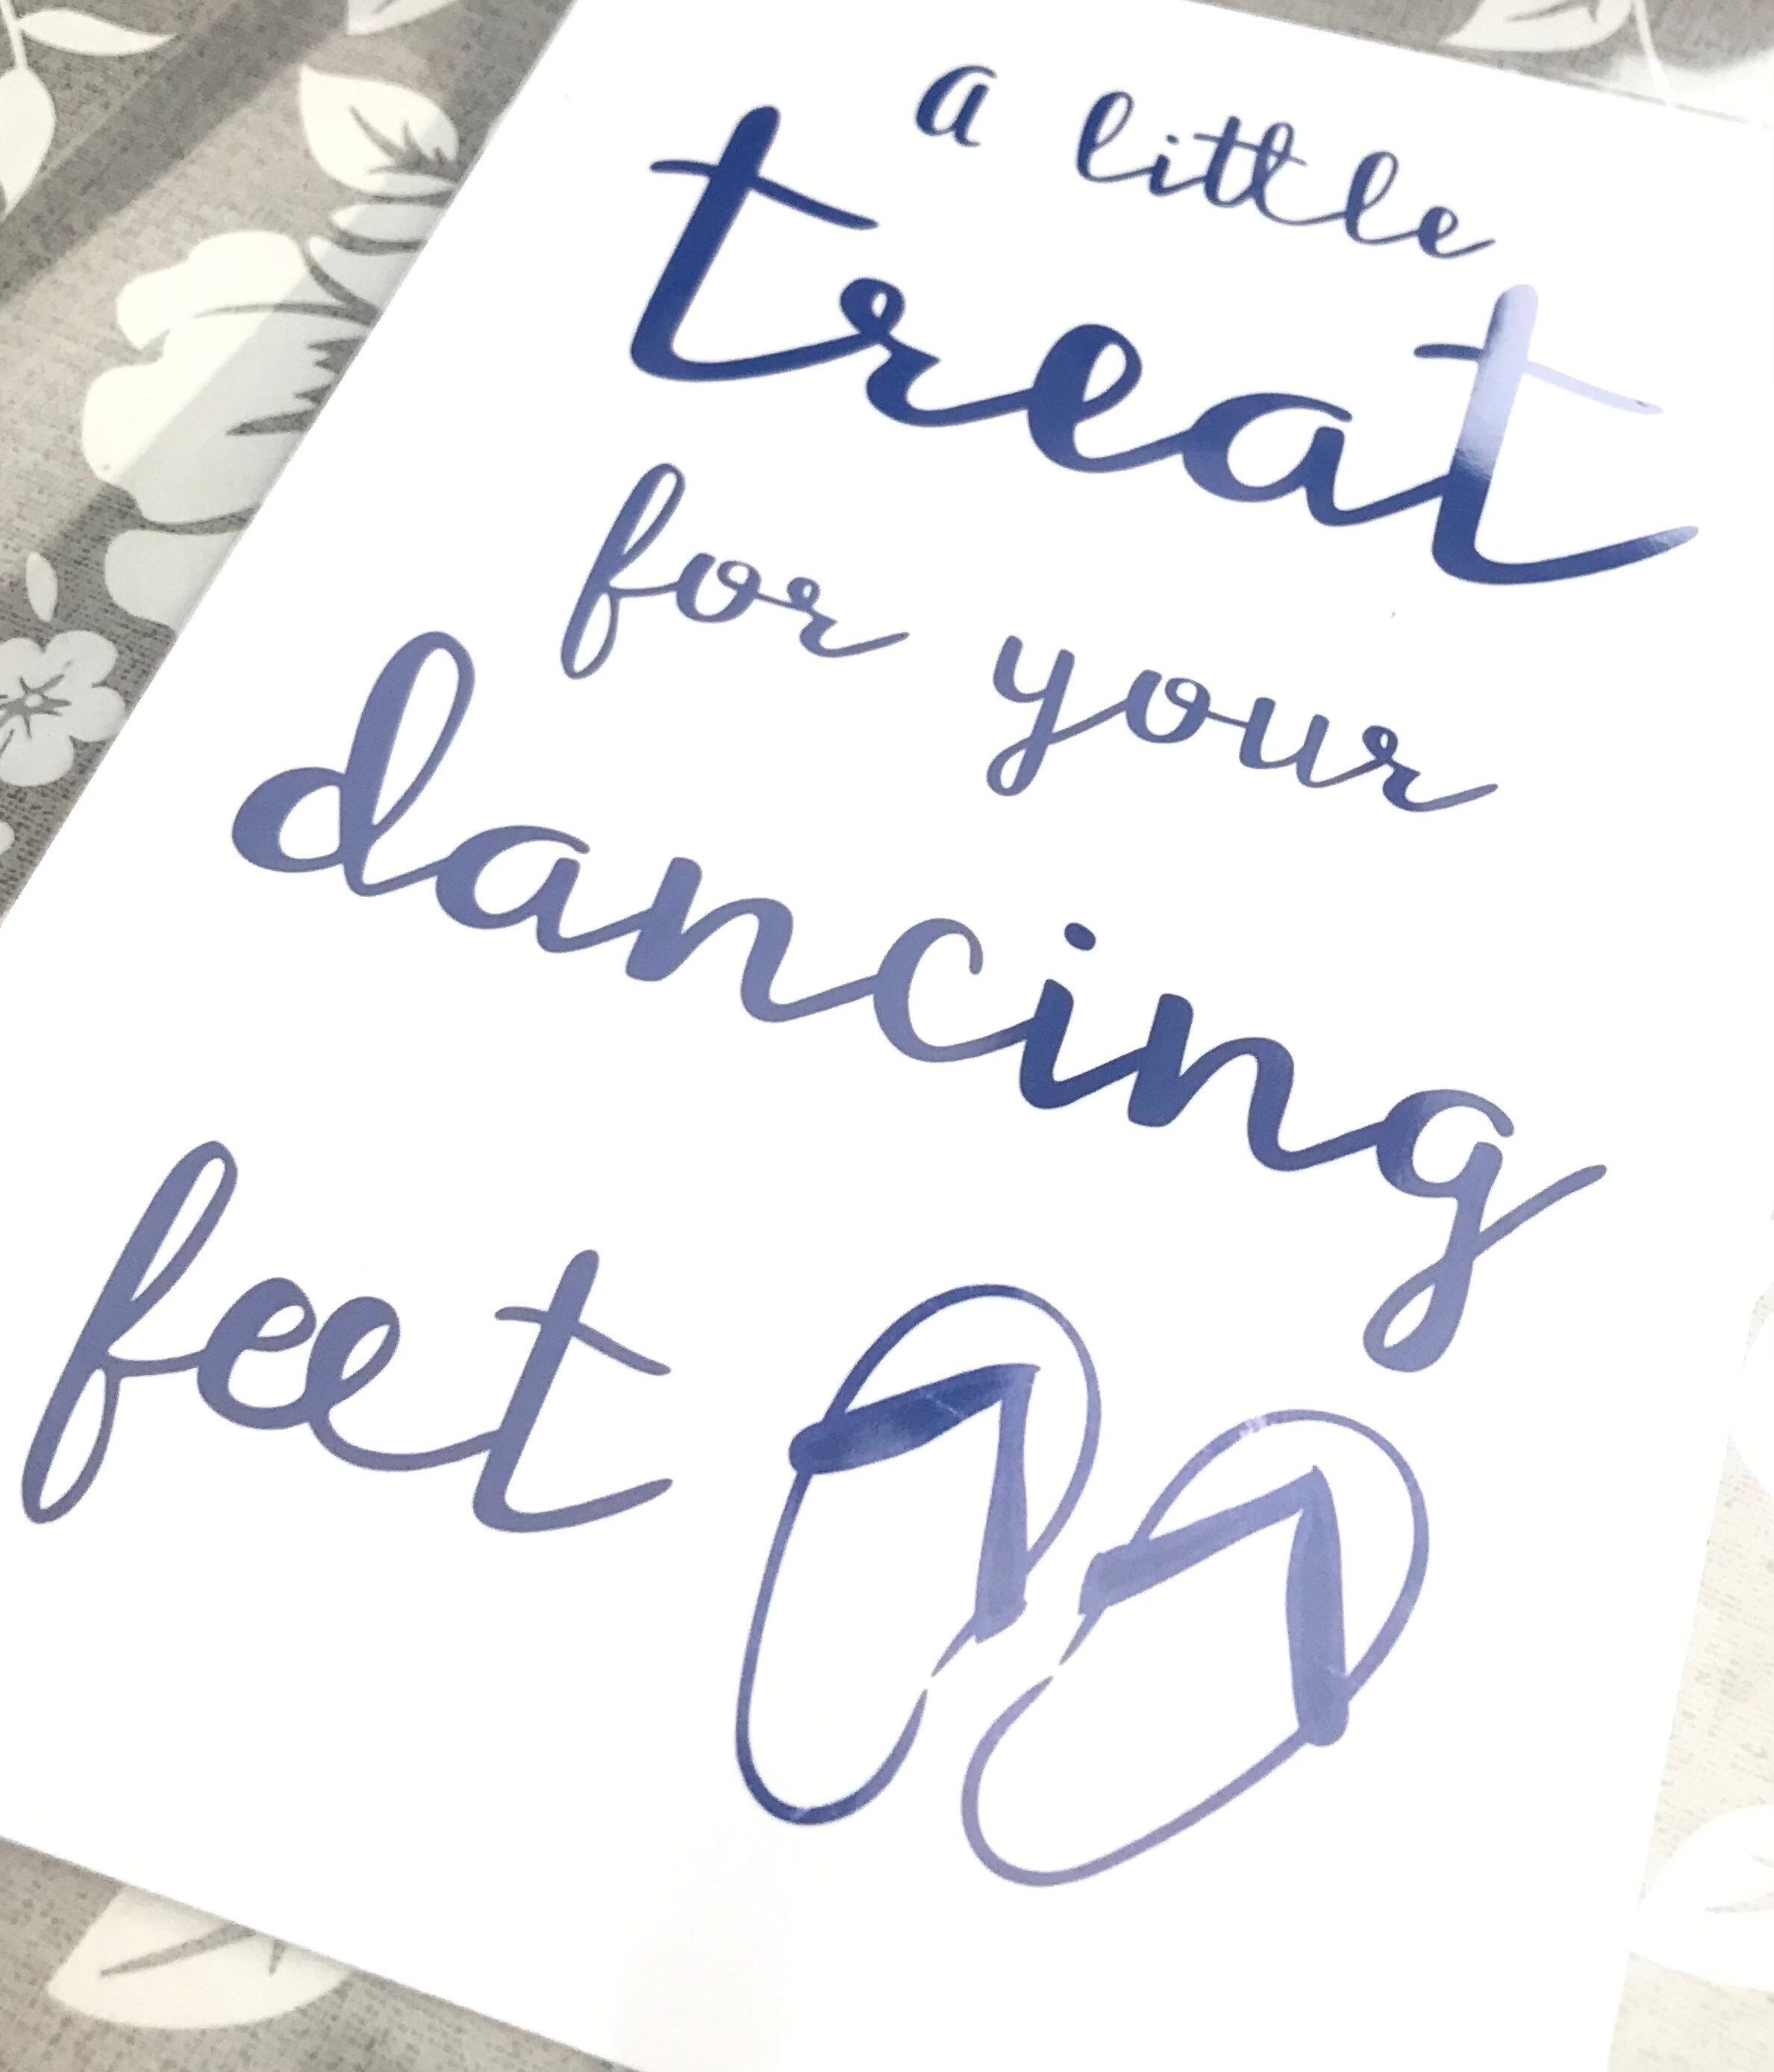 a little
treat
for your
dancing
feet